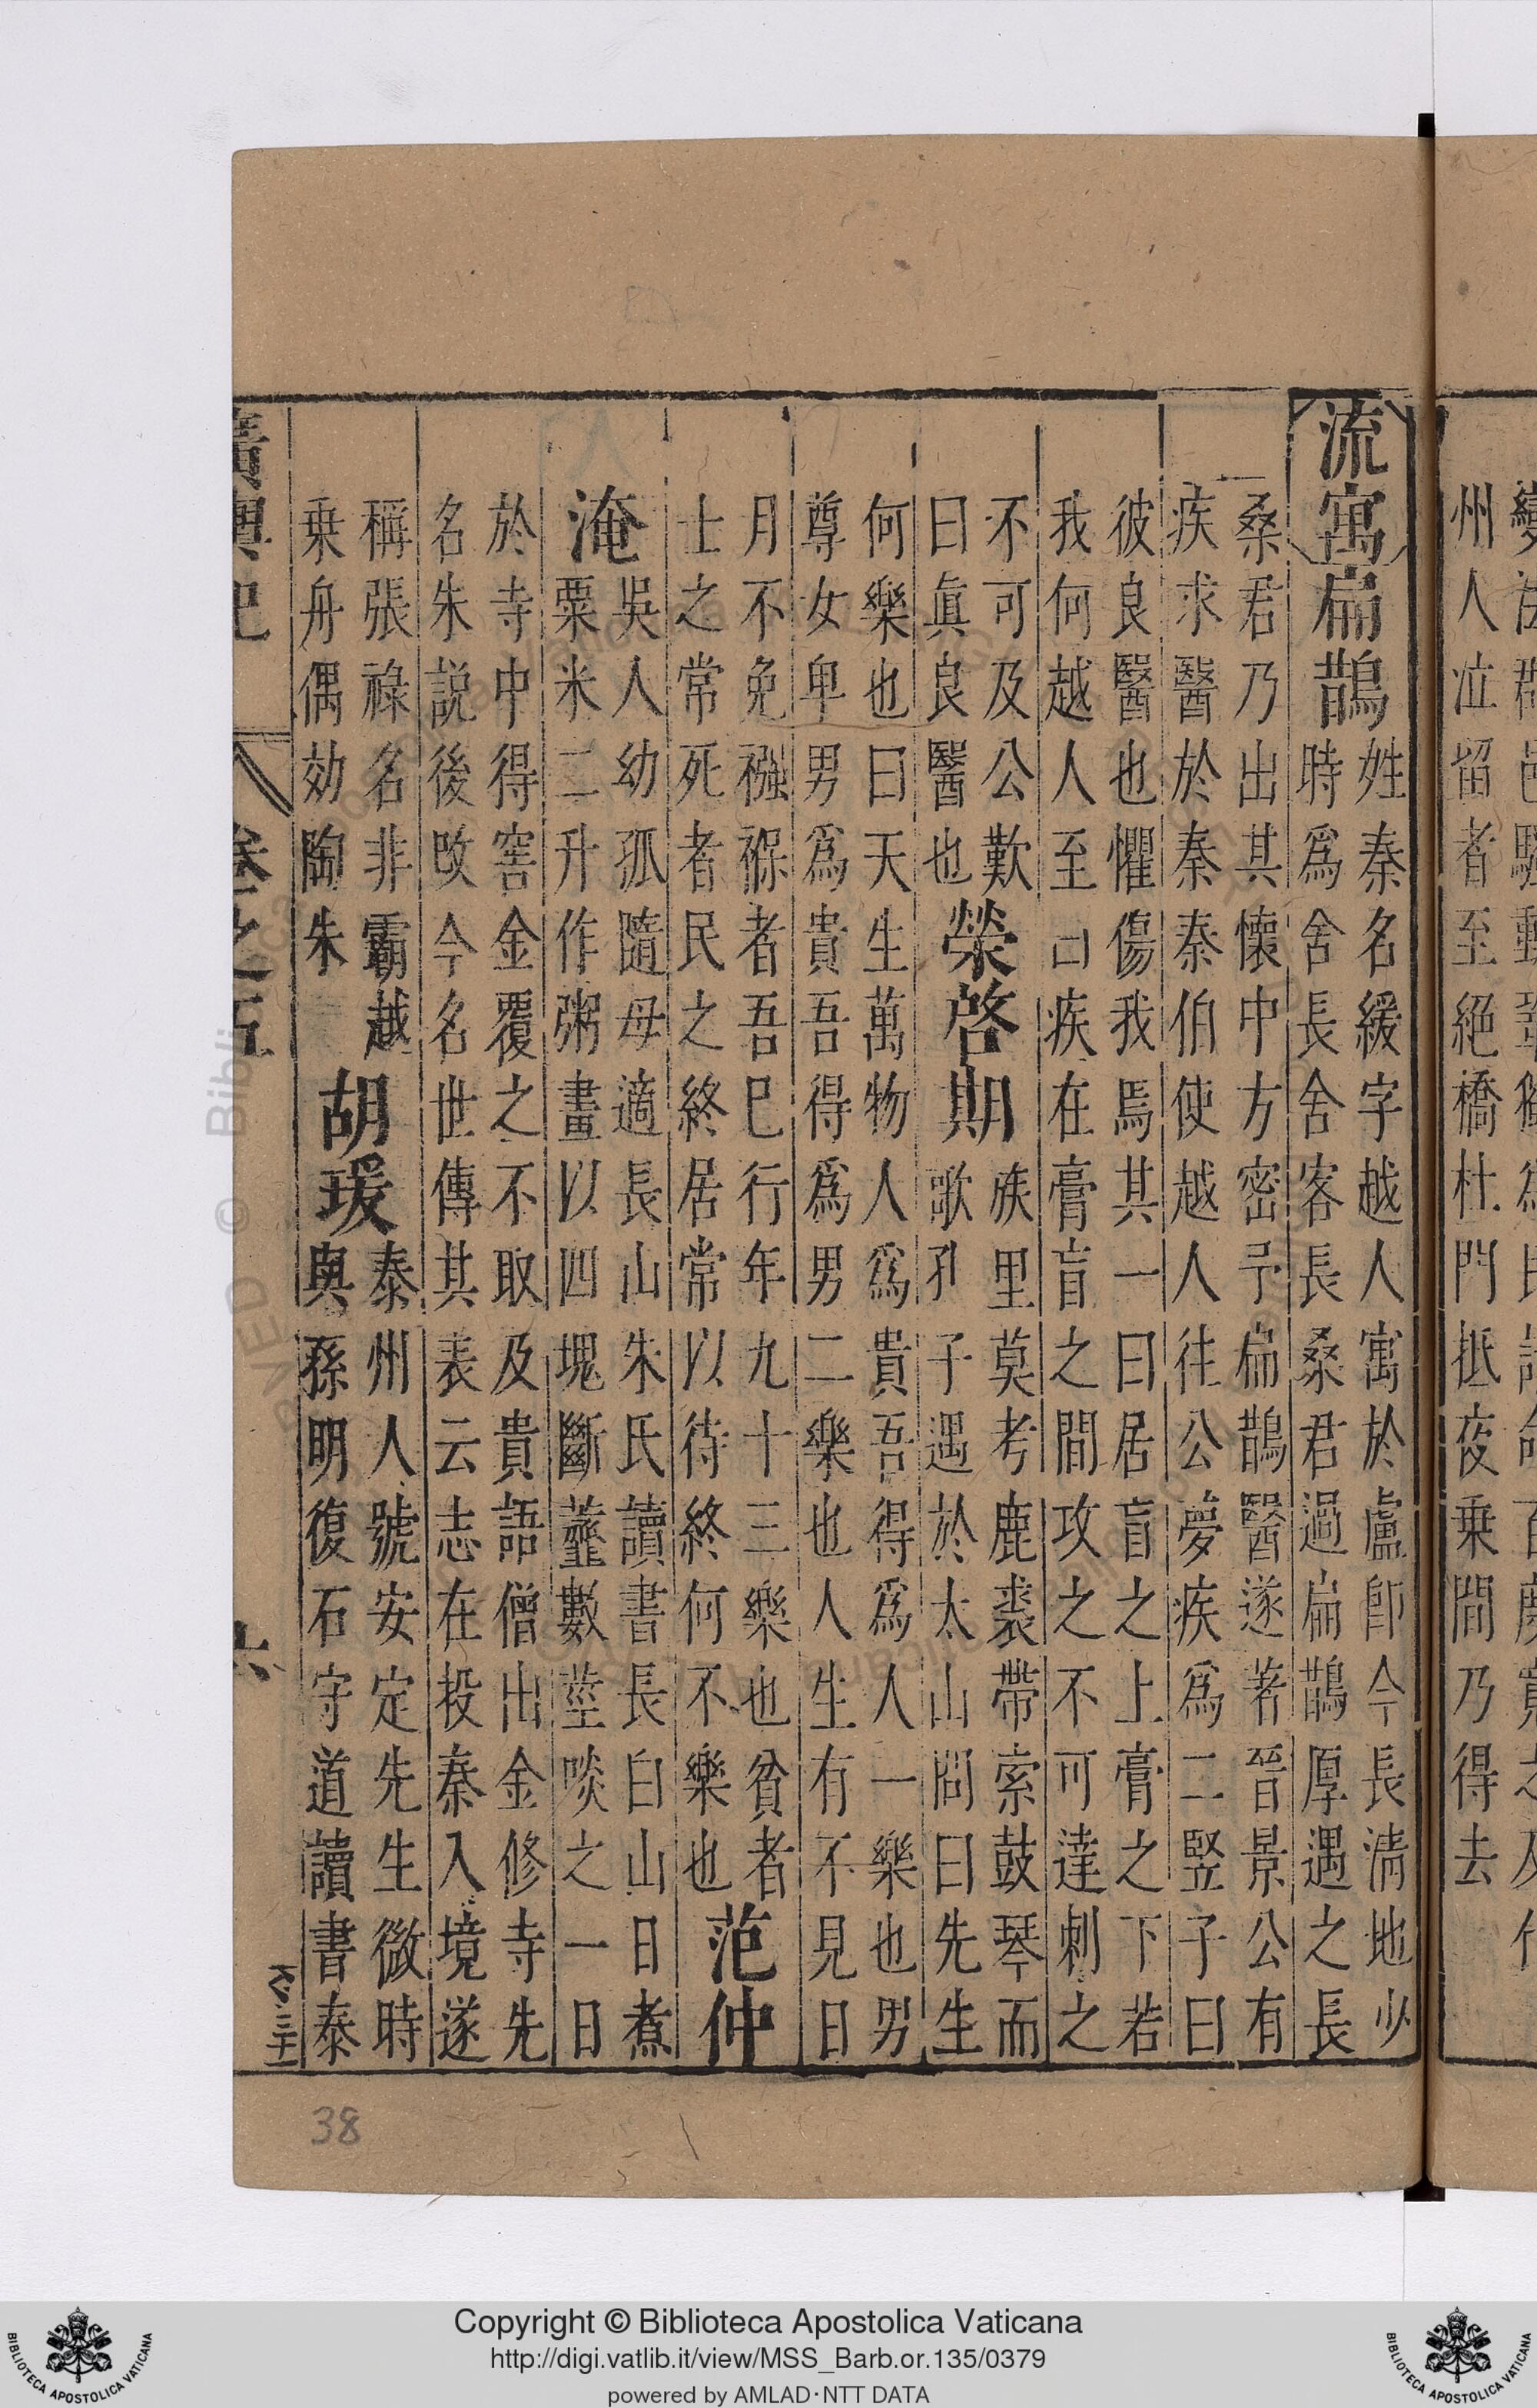 州人竝留者至絕橋杜門抵夜乗間乃得去
流寓扁鵲
姓秦名緩字越人寓於盧卽今長清地少
時爲舍長舍客長桑君過扁鵲厚遇之長
桑君乃出其懷中方密予扁鵲醫遂著晉景公有
疾求醫於秦秦伯使越人往公夢疾爲二竪子曰
彼良醫也懼傷我焉其一曰居肓之上膏之下若
我何越人至曰疾在膏肓之間攻之不可達刺之
不可及公歎
曰眞良醫也
榮啓期
族里莫考鹿裘帶索鼓琴而
歌孔子遇於太山問曰先生
何樂也曰天生萬物人爲貴吾得爲人一樂也男
尊女卑男爲貴吾得爲男二樂也人生有不見日
月不免襁褓者吾已行年九十三樂也貧者
士之常死者民之終居常以待終何不樂也
范仲
淹
吳人幼孤隨母適長山朱氏讀書長白山日煮
粟米二升作粥畫以四塊斷虀數莖啖之一日
於寺中得窖金覆之不取及貴語僧出金修寺先
名朱説後改今名世傳其表云志在投秦入境遂
稱張祿名非霸越
乗舟偶効陶朱
胡瑗
泰州人號安定先生微時
與孫明復石守道讀書泰
廣輿記
卷之五
六
38
Copyright © Biblioteca Apostolica Vaticana
http://digi.vatlib.it/view/MSS_Barb.or.135/0379
powered by AMLAD·NTT DATA
BIBLIOTECA APOSTOLICA VATICANA
BIBLIOTECA APOSTOLICA VATICANA